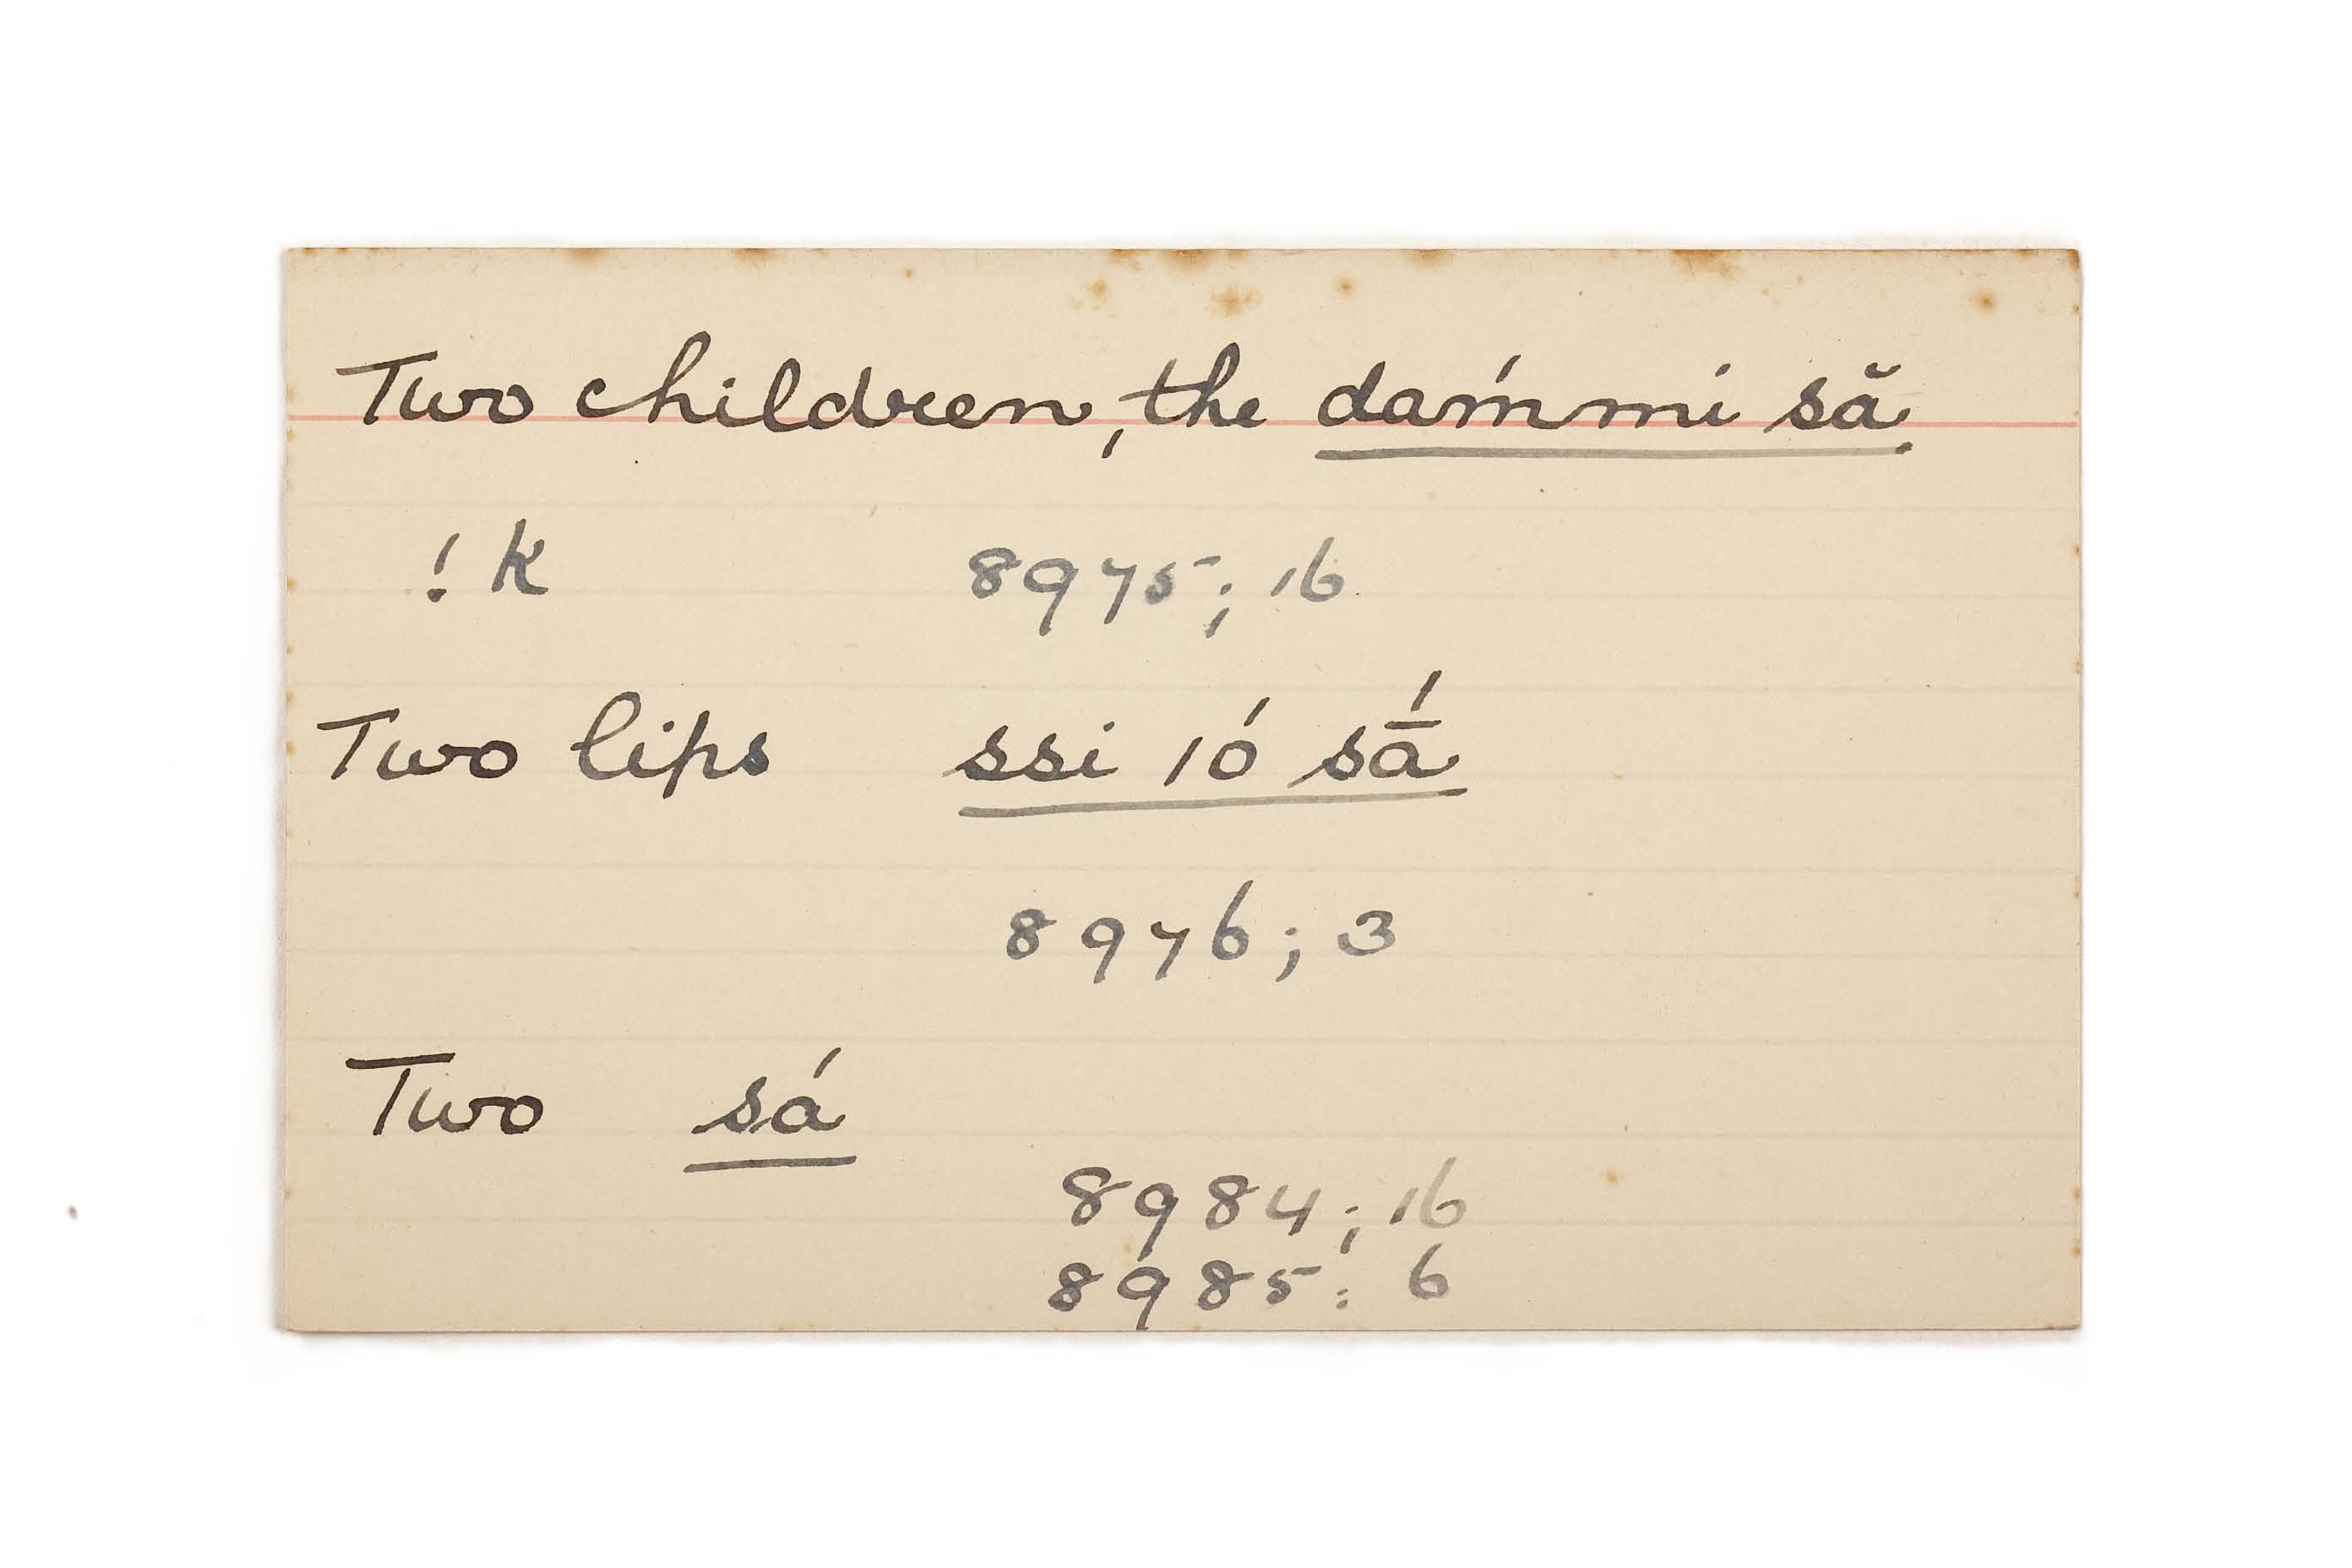 Two children, the daḿmi să
! k 8975; 16
Two lips ssi ıó sā́
8976; 3
Two sá
8984; 16
8985; 6